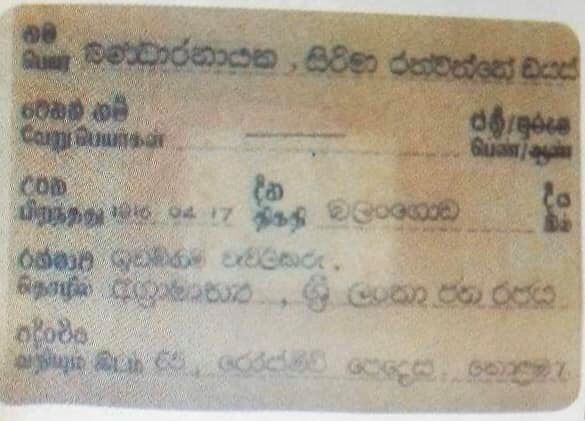 නම
பெயர் බණ්ඩාරනායක , සිරිමා රත්වත්තේ ඩයස්
වෙනත් නම්
வேறு பெயர்கள் ස්ත්‍රී/පුරුෂ
பெண்/ஆண்
උපන් දින
பிறந்தது 1916. 04. 17 திகதி බලංගොඩ
රක්ෂාව ඉඩම්හිමි වැවිලිකරු.
தொழில் අග්‍රාමාත්‍ය , ශ්‍රී ලංකා ජන රජය
පදිංචිය
வதியும் இடம் 65, රොස්මිඩ් පෙදෙස. කොළඹ 7.